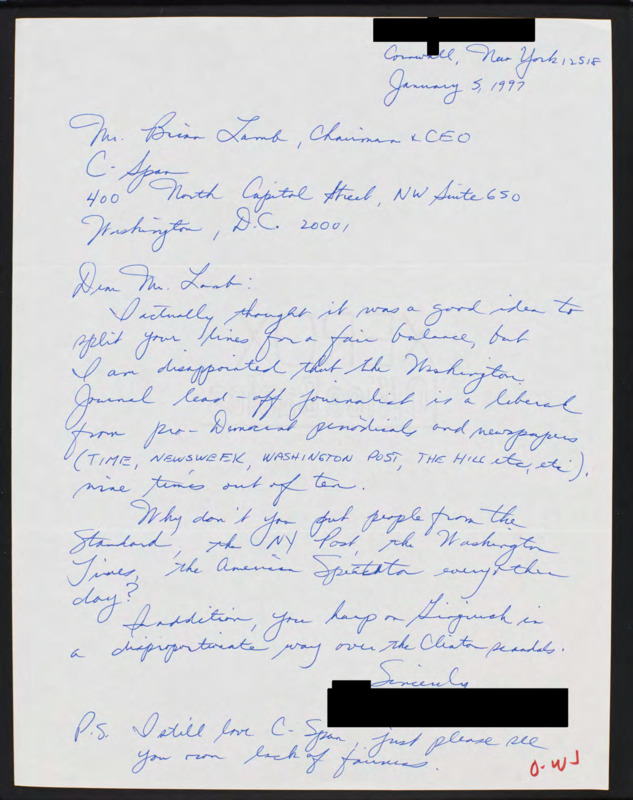 Cornwall, New York 12518
January 5, 1997
Mr. Brian Lamb, Chairman & CEO
C-Span
400 North Capitol Street, NW Suite 650
Washington, D.C. 20001
Dear Mr. Lamb:
I actually thought it was a good idea to
split your lines for a fair balance, but
I am disappointed that the Washington
Journal lead-off journalist is a liberal
from pro-Democrat periodicals and newspapers
(TIME, NEWSWEEK, WASHINGTON POST, THE HILL etc, etc).
nine times out of ten.
Why don't you put people from the
Standard, the NY Post, the Washington
Times, the American Spectator every other
day?
In addition, you harp on Gingrich in
a disproportionate way over the Clinton scandals.
Sincerely
P.S. I still love C-Span, just please see
you own lack of fairness.
O-WJ